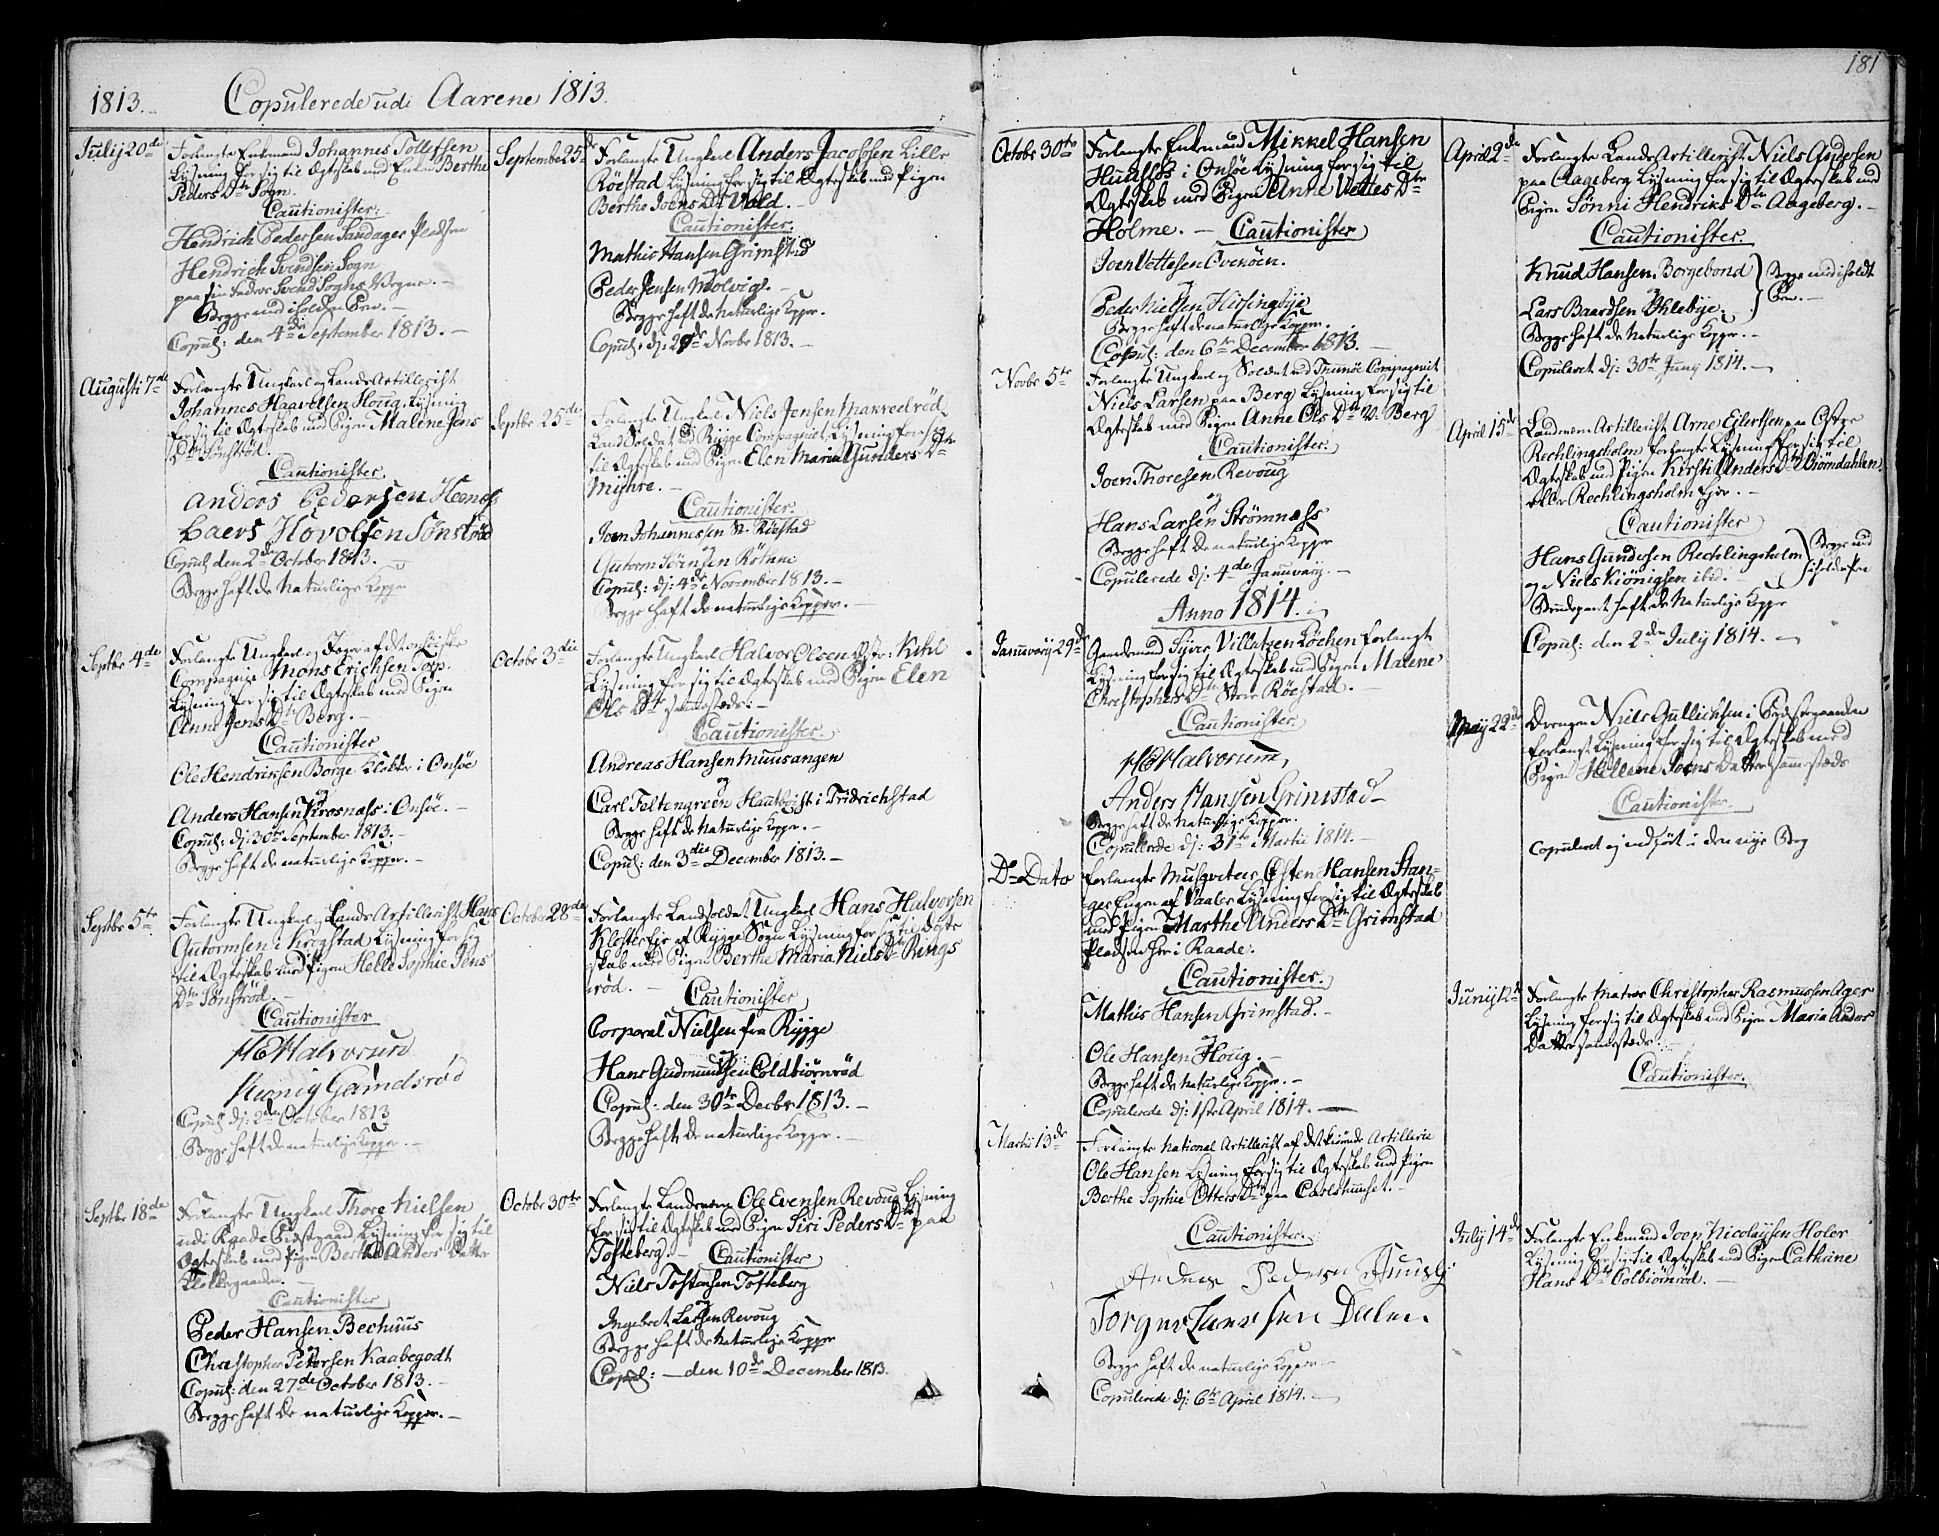 1813. Copulerede udi Aarene 1813.
Julij 20de Forlangte Enkemand Johannes Tollefsen
Lysning for sig til Ægteskab med Enken Berthe
Peders Dtr Sogn.
Cautionister:
Hendrich Pedersen Sandager Pladsen
Hendrich Svendsen Sogn
paa sin Faders Svend Sogns Vegne. –
Begge med iholden Pen. –
Copul: den 4de September 1813. –
Augusti 7de Forlangte Ungkarl og Lands Artillerist
Johannes Haavelsen Houg Lysning
for sig til Ægteskab med Pigen Malene Jens
Dtr Sønstrød.
Cautionister
Anders Pedersen
Laers Hovolsen Sønstrød
Copul den 2de October 1813. –
Begge haft de Naturlige Kopper
Septbr 4de Forlangte Ungkarl og Jæger af
Compagnie Mons Erichsen
Lysning for sig til Ægteskab med Pigen
Anne Jens Dtr Berg. –
Cautionister
Ole Hendriksen Borge Klokker i Onsöe
og
Anders Hansen Krosnæss i Onsöe. –
Copul: dj: 30te September 1813. –
Begge haft de naturlige Kopper. –
Septbr 5te Forlangte Ungkarl og Lands Artillerist Hans
Gutormsen i Krogstad Lysning for sig
til Ægteskab med Pigen Helle Sophie Jens
Dtr Sønstrød. –
Cautionister
HE Halvorsen
Copul: dj: 2den October 1813
Begge haft de naturlige Kopper. –
Septbr 18de Forlangte Ungkarl Thore Nielsen
udi Raade Lysning for sig til
Ægteskab med Pigen Berthe Anders Datter
Klokkergaarden. –
Cautionister
Peder Hansen Bechuus
og
Christopher Petersen Kaabegodt
Copul: den 27de October 1813. –
Begge haft de naturlige Kopper. –
September 25de Forlangte Ungkarl Anders Jacobsen Lille
Röestad Lysning for sig til Ægteskab med Pigen
Berthe Ivers Dtr Vold. –
Cautionister.
Mathis Hansen Grimstad
og
Peder Jensen Molvig. –
Begge haft de Naturlige Kopper.
Copul: dj: 29de Novbr 1813. –
Septbr 25de Forlangte Ungkarl Niels Jensen Makreelrød
Land Soldat ved Rygge Compagniet Lysning for sig
til Ægteskab med Pigen Elen Maria Gunders Dtr
Myhre. –
Cautionister.
Joen Johannessen N. Röestad
og
Gutorm Sörensen Röthne
Copul: dj: 4de November 1813. –
Begge haft de naturlige Kopper. –
Octobr 3die Forlangte Ungkarl Halvor Olsen Østr: Kihl
Lysning for sig til Ægteskab med Pigen Elen
Ols Dtr sammesteds. –
Cautionister.
Andreas Hansen Muusangen
og
Carl Feltengreen Hautboist i Fridrichstad
Begge haft de Naturlige Kopper. –
Copul: den 3die December 1813. –
October 28de Forlangte Landsoldat Ungkarl Hans Halvorsen
Klosterleje af Rygge Sogn Lysning for sig til Ægte
skab med Pigen Berthe Maria Niels Dtr Rings
rød. –
Cautionister
Corporal Nielsen fra Rygge
og
Hans Gudmundsen Coldbiörnröd
Copul: den 30te Decbr 1813. –
Begge haft de naturlige Kopper. –
Octobr 30te Forlangte Landværn Ole Evensen Revoug Lysning
for sig til Ægteskab med Pigen Siri Peders Dtr paa
Tofteberg. – Cautionister
Niels Tostensen Tofteberg
og
Ingebret Larsen Revoug
Begge haft de Naturlige Kopper
Copul: – den 10de December 1813.
181
Octobr 30te Forlangte Enkemand Mikkel Hansen
Huuslös i Onsöe Lysning for sig til
Ægteskab med Pigen Anne Vettes Dtr
Holme. – Cautionister
Joen Vettesen Ovenöen.
og
Peder Nielsen Kirsingbye
Begge haft de naturlige Kopper.
Copul: den 6te December 1813. –
Novbr 5te Forlangte Ungkarl og Soldat ved Thunöe Compagniet
Niels Larsen paa Berg Lysning for sig til
Ægteskab med Pigen Anne Ols Dtr N. Berg
Cautionister.
Joen Thoresen Revoug
og
Hans Larsen Strömnæss
Begge haft de naturlige Kopper
Copulerede dj: 4de Januvarij. –
Anno 1814.
Januvarij 29de Gaardmand Syver Villatzen Löchen forlangte
Lysning for sig til Ægteskab med Pigen Malene
Christophers Dtr Store Röestad. –
Cautionister
HE Halvorsen,
Anders Hanssen Grimstad –
Begge haft de Naturlige Kopper.
Copullerede dj: 31te Martii 1814. –
Do Dato Forlangte Musqveteer Østen Hansen Stan-
gerengen af Vaaler Lysning for sig til Ægteskab
med Pigen Marthe Anders Dtr Grimstad
Pladsen her i Raade.
Cautionister.
Mathis Hansen Grimstad. –
og
Ole Hansen Houg. –
Begge haft de Naturlige Kopper. –
Copulerede dj: 1ste April 1814. –
Martii 13de Forlangte National Artillerist af det kiörende Artillerie
Ole Hansen Lysning for sig til Ægteskab med Pigen
Berthe Sophie Otters Dtr paa Carlshuuset. –
Cautionister.
Andreas Pedersen
Begge haft de naturlige Kopper. –
Copulerede dj: 6te April 1814. –
April 2de Forlangte Lands Artillerist Niels Andersen
paa Aageberg Lysning for sig til Ægteskab med
Pigen Sønni Hendriks Dtr Aageberg. –
Cautionister.
Knud Hansen Borgebond
og
Lars Baardsen Uhlebye.
Begge med iholdt
Pen. –
Begge haft de Naturlige Kopper. –
Copuleret dj: 30te Juny 1814. –
April 15de Landværn Artillerist Arne Eilertsen paa Østre
Rechlingsholm forlangte Lysning for sig til
Ægteskab med Pigen Kersti Anders Dtr Biörndahlen
eller Rechlingsholm Ejer. –
Cautionister
Hans Gundersen Rechlingsholm
og Niels Kiönigsen ibid. –
Begge med
iholden Pen
Brudeparet haft de Naturlige Kopper
Copul: den 2den July 1814. –
Maij 22de Drengen Niels Gullichsen i
forlangte Lysning for sig til Ægteskab med
Pigen Hellene Joens Datter sammesteds
Cautionister
Copuleret og indført i den nye Bog
Junij 12te Forlangte Matros Christopher Rasmussen Ager
Lysning for sig til Ægteskab med Pigen Maria Anders
Datter sammesteds. –
Cautionister.
July 14de Forlangte Enkemand Joep Nicolaysen Holer
Lysning for sig til Ægteskab med Pigen Cathrine
Hans Dtr Colbiörnröd. –